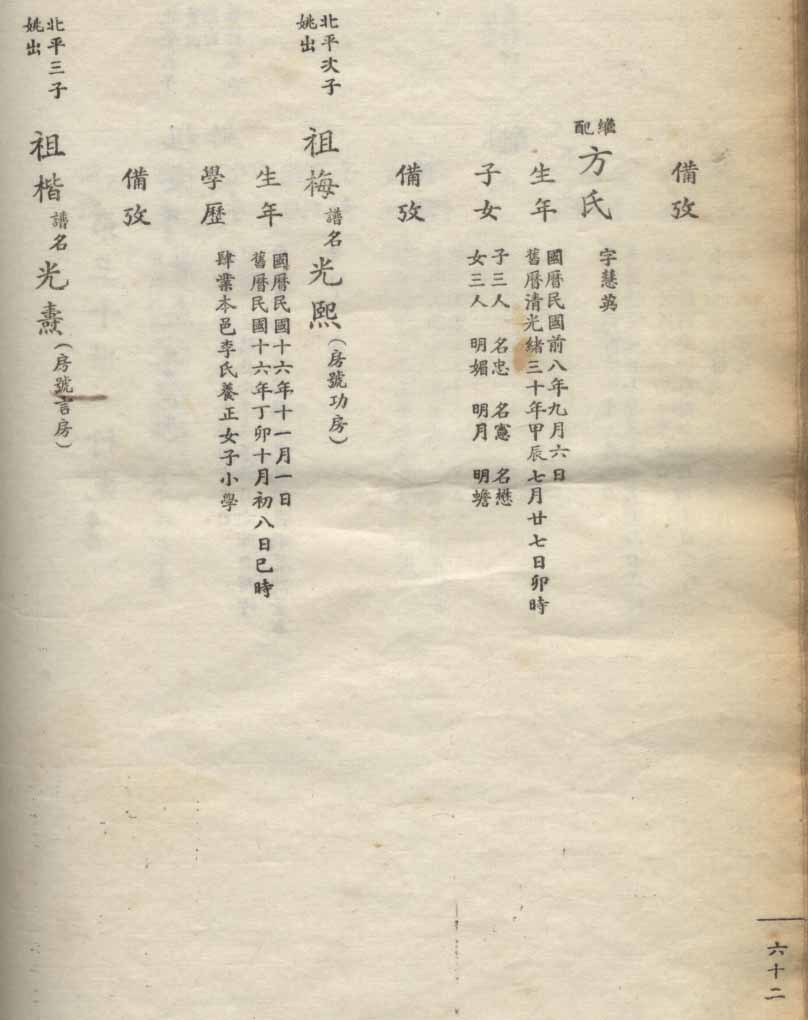 備攷
繼配 方氏 字慧英
生年 國曆民國前八年九月六日
舊曆清光緒三十年甲辰七月廿七日卯時
子女 子三人 名忠 名憲 名懋
女三人 明媚 明月 明蟾
備攷
北平次子
姚出
祖梅 譜名 光熙 (房號功房)
生年 國曆民國十六年十一月一日
舊曆民國十六年丁卯十月初八日巳時
學歷 肄業本邑李氏養正女子小學
備攷
北平三子
姚出
祖楷 譜名 光燾 (房號言房)
六十二